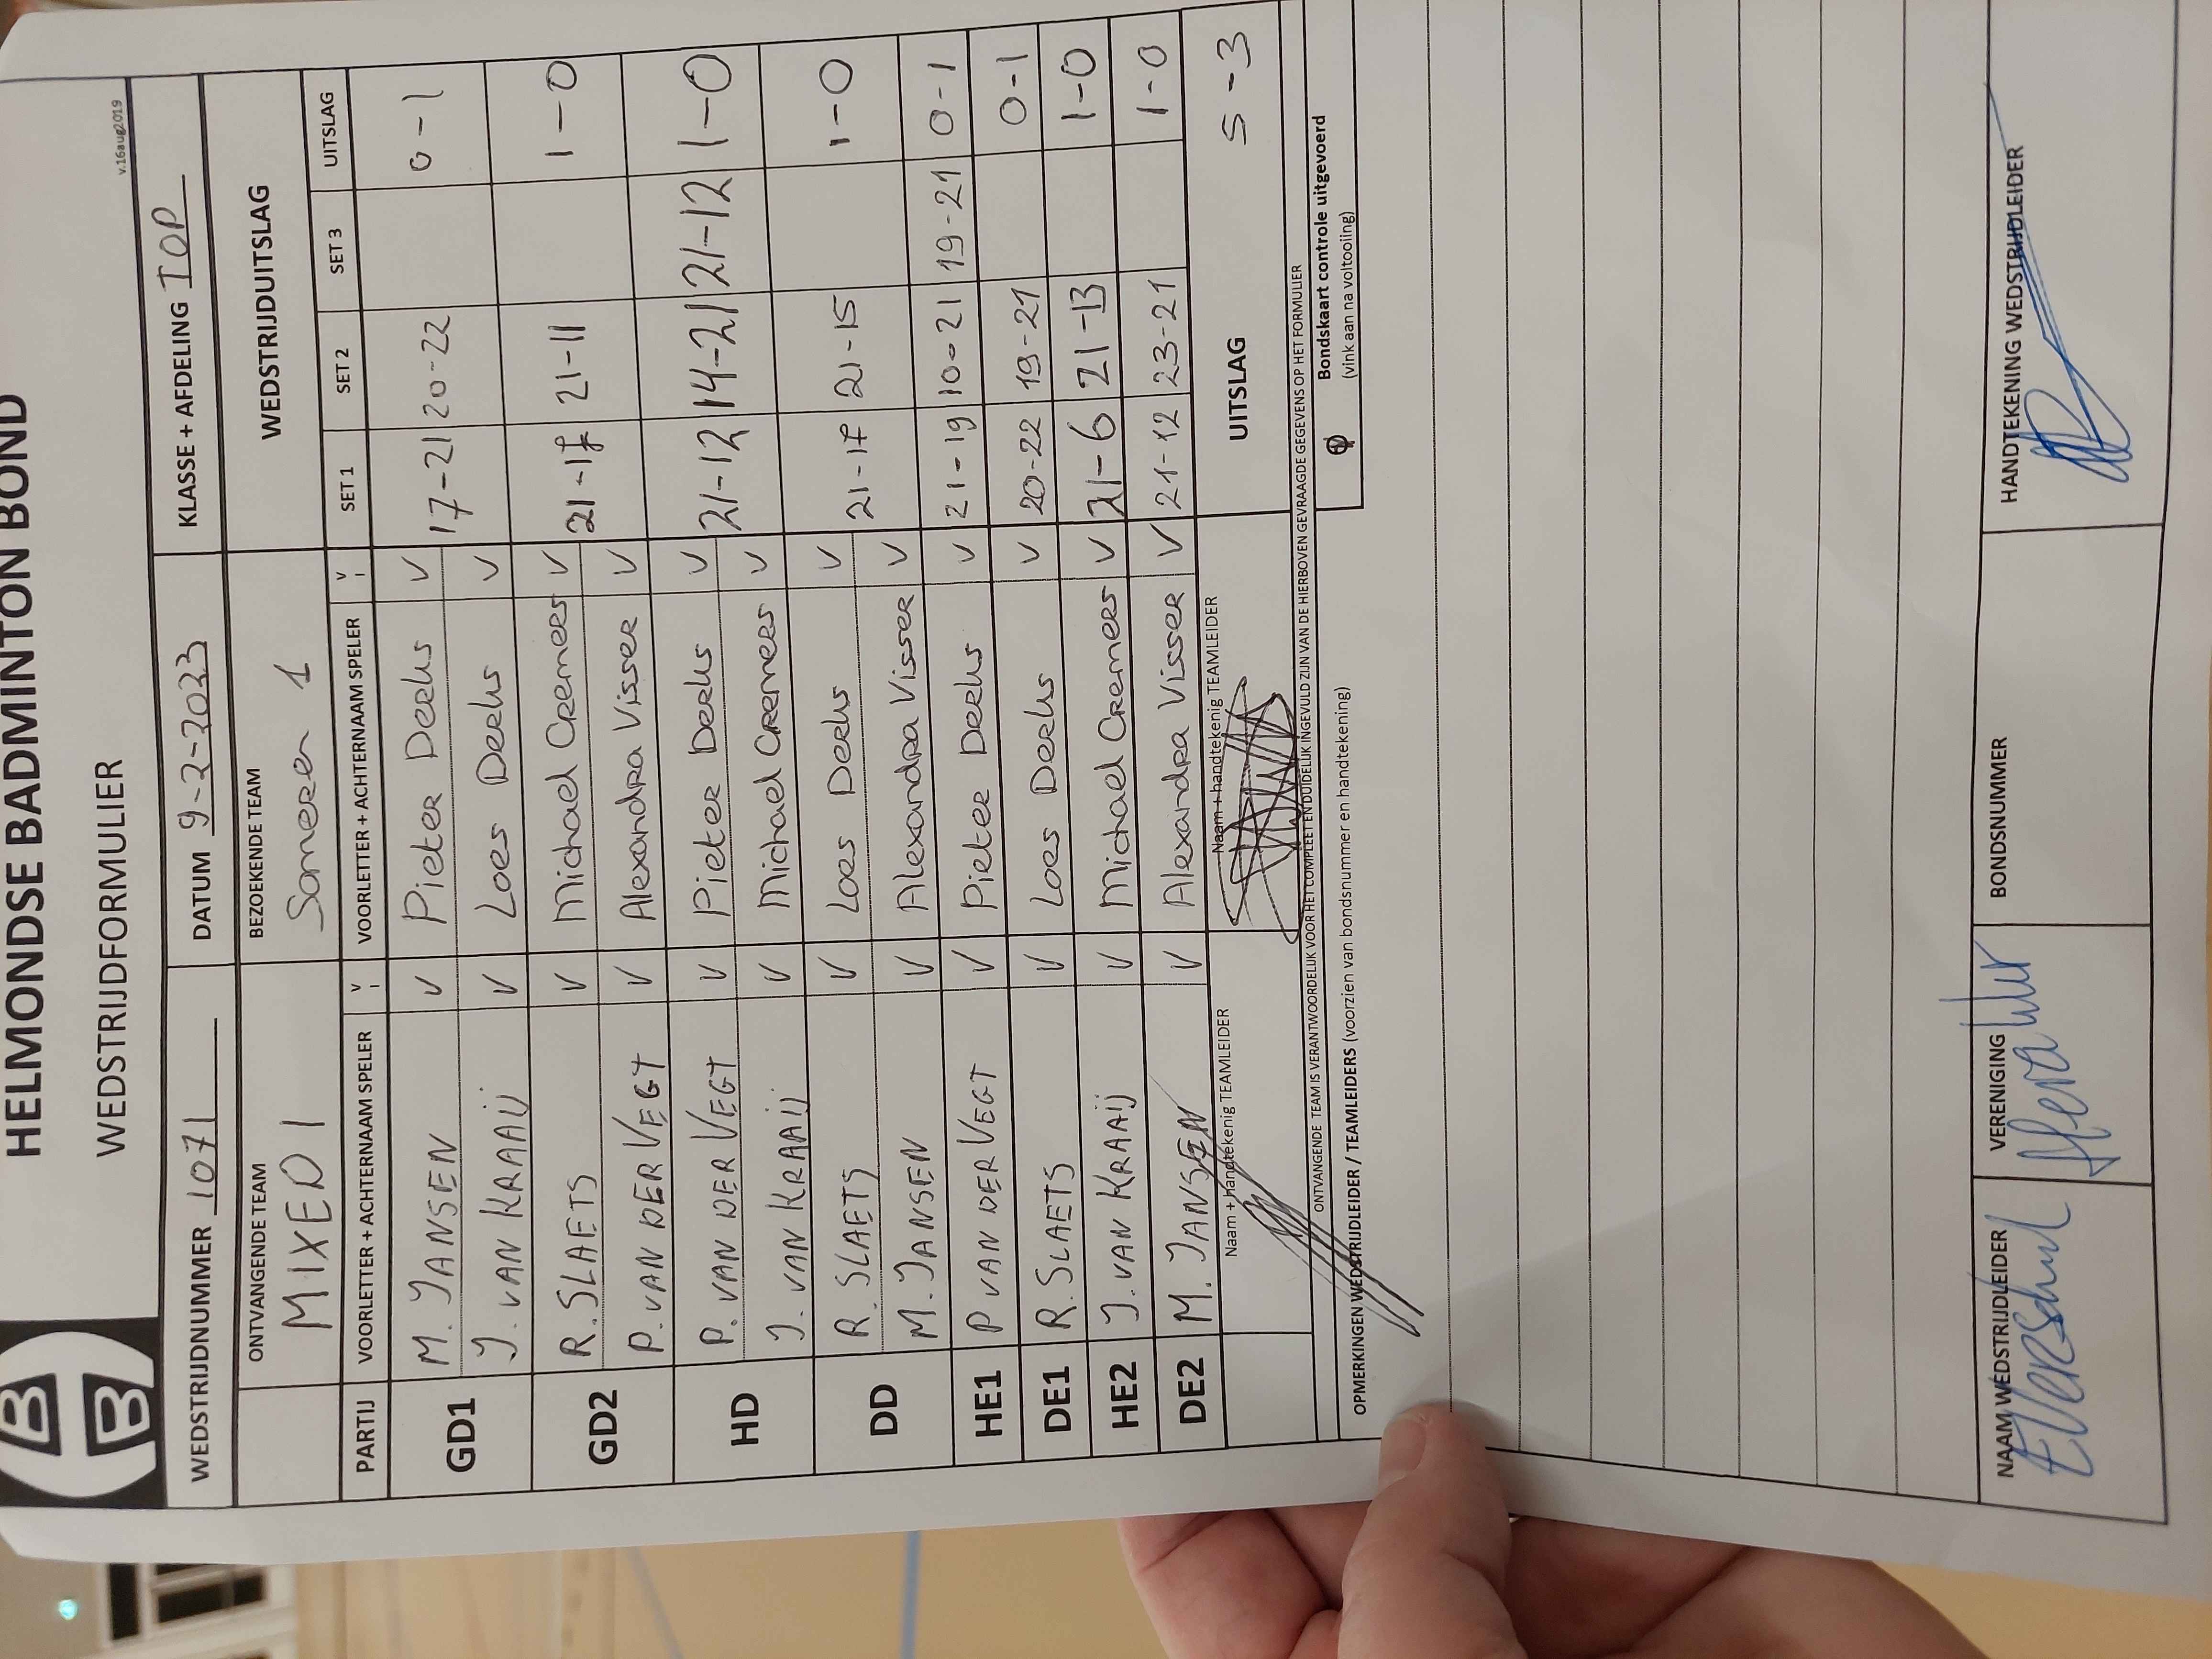 HELMONDSE BADMINTON BOND
WEDSTRIJDFORMULIER
v.16aug2019
WEDSTRIJDNUMMER 1071 DATUM 9-2-2023 KLASSE + AFDELING TOP
ONTVANGENDE TEAM BEZOEKENDE TEAM WEDSTRIJDUITSLAG
MIXED 1 Someren 1
PARTIJ VOORLETTER + ACHTERNAAM SPELER V VOORLETTER + ACHTERNAAM SPELER V SET 1 SET 2 SET 3 UITSLAG
GD1 M. JANSEN V Pieter Derks V 17-21 20-22 0-1
J. VAN KRAAIJ V Loes Derks V
GD2 R. SLAETS V Michael Cremers V 21-17 21-11 1-0
P. VAN DER VEGT V Alexandra Visser V
HD P. VAN DER VEGT V Pieter Derks V 21-12 14-21 21-12 1-0
J. VAN KRAAIJ V Michael Cremers V
DD R. SLAETS V Loes Derks V 21-17 21-15 1-0
M. JANSEN V Alexandra Visser V
HE1 P VAN DER VEGT V Pieter Derks V 21-19 10-21 19-21 0-1
DE1 R. SLAETS V Loes Derks V 20-22 19-21 0-1
HE2 J. VAN KRAAIJ V Michael Cremers V 21-6 21-13 1-0
DE2 M. JANSEN V Alexandra Visser V 21-12 23-21 1-0
Naam + handtekenig TEAMLEIDER Naam + handtekenig TEAMLEIDER UITSLAG 5-3
ONTVANGENDE TEAM IS VERANTWOORDELIJK VOOR HET COMPLEET EN DUIDELIJK INGEVULD ZIJN VAN DE HIERBOVEN GEVRAAGDE GEGEVENS OP HET FORMULIER
OPMERKINGEN WEDSTRIJDLEIDER / TEAMLEIDERS (voorzien van bondsnummer en handtekening)
Bondskaart controle uitgevoerd
(vink aan na voltooiing)
NAAM WEDSTRIJDLEIDER VERENIGING BONDSNUMMER HANDTEKENING WEDSTRIJDLEIDER